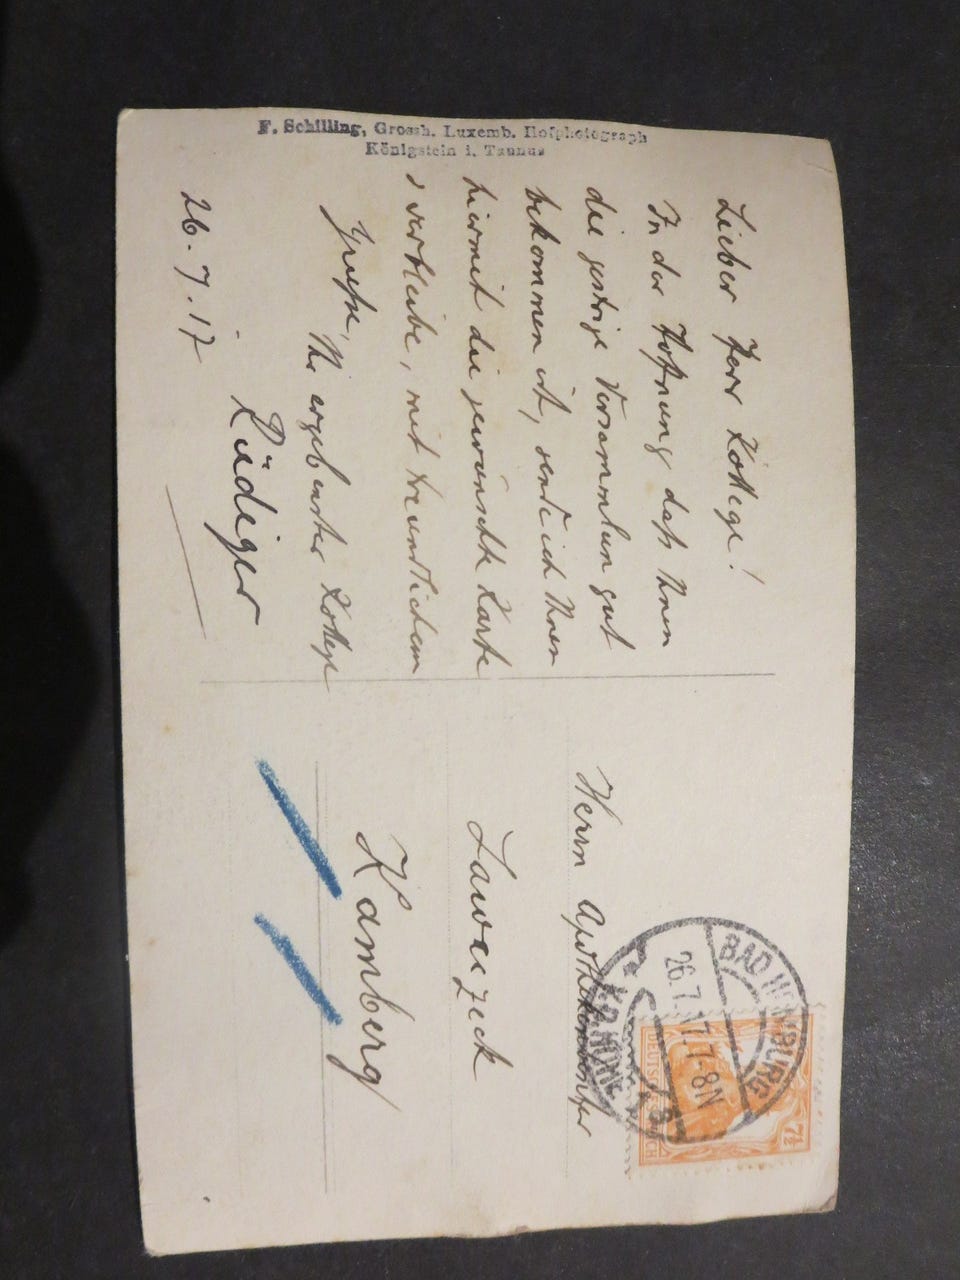 F. Schilling, Grossh. Luxemb. Hofphotograph
Königstein i. Taunus
Lieber Herr Kollege!
In der Hoffnung dass Ihnen
die gestrige Versammlung gut
bekommen ist, sende ich Ihnen
hiermit die gewünschte Karte
verbleibe, mit freundlichem
Grusse,
Ihr ergebenster Kollege
Rüdiger
26.7.17
Herrn
Lawaczeck
Kamberg
BAD HOMBURG
26.7.17.7-8N
DEUTSCHES REICH
7½